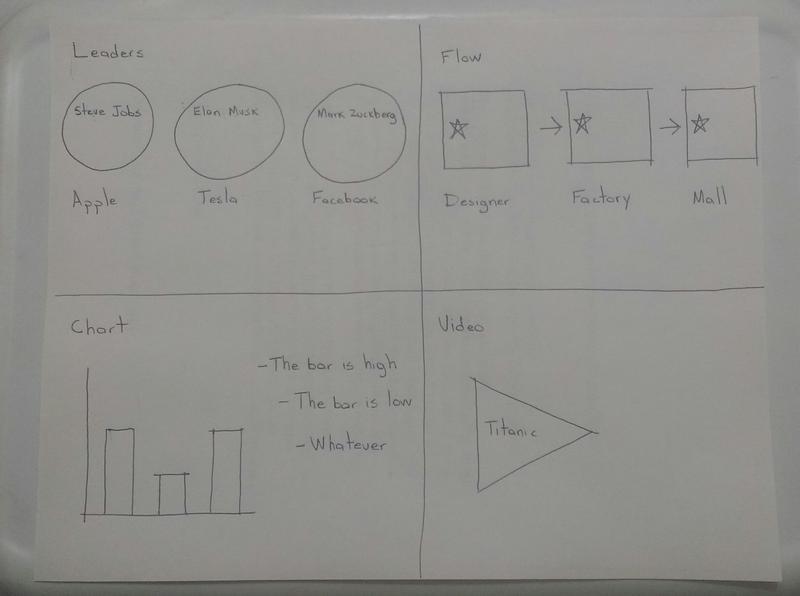 Leaders
Steve Jobs
Elon Musk
Mark Zuckberg
Apple
Tesla
Facebook
Flow
Designer
Factory
Mall
Chart
-The bar is high
- The bar is low
- Whatever
Video
Titanic